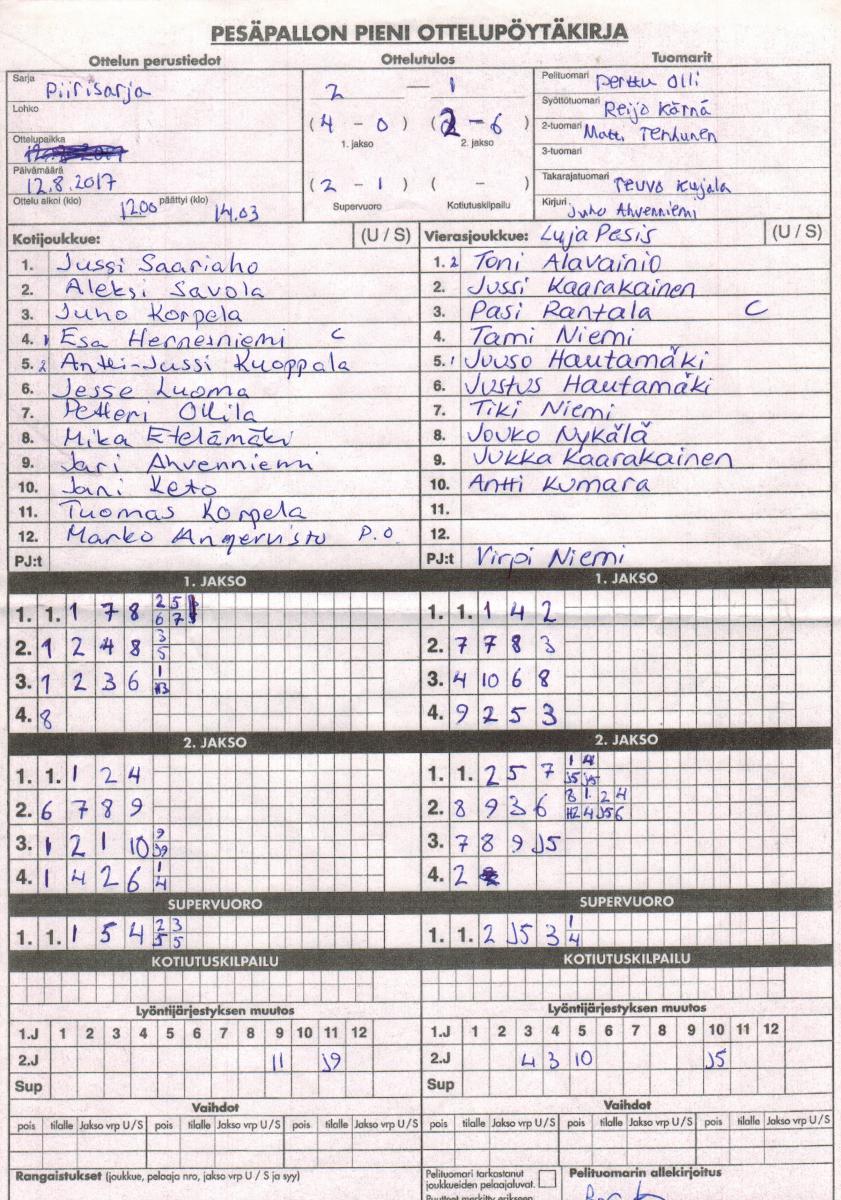 PESÄPALLON PIENI OTTELUPÖYTÄKIRJA
Ottelun perustiedot
Sarja Piirisarja
Lohko
Ottelupaikka
Päivämäärä 12.8.2017
Ottelu alkoi (klo) 12.00 päättyi (klo) 14.03
Ottelutulos
2 — 1
(4 - 0) (2 - 6)
1. jakso 2. jakso
(2 - 1) ( - )
Supervuoro Kotiutuskilpailu
Tuomarit
Pelituomari Perttu Olli
Syöttötuomari Reijo Kärnä
2-tuomari Matti Tenhunen
3-tuomari
Takarajatuomari Teuvo Kujala
Kirjuri Juho Ahvenniemi
Kotijoukkue: (U / S)
1. Jussi Saariaho
2. Aleksi Savola
3. Juho Korpela
4. 1 Esa Hernesniemi C
5. 2 Antti-Jussi Kuoppala
6. Jesse Luoma
7. Petteri Ollila
8. Mika Etelämäki
9. Jari Ahvenniemi
10. Jani Keto
11. Tuomas Korpela
12. Marko Angervisto P.O.
PJ:t
Vierasjoukkue: LujaPesis (U / S)
1. 2 Toni Alavainio
2. Jussi Kaarakainen
3. Pasi Rantala C
4. Tami Niemi
5. 1 Juuso Hautamäki
6. Justus Hautamäki
7. Tiki Niemi
8. Jouko Nykälä
9. Jukka Kaarakainen
10. Antti Kumara
11.
12.
PJ:t Virpi Niemi
1. JAKSO
1. 1. 1 7 8 2 5
6 7
2. 1 2 4 8 3
5
3. 1 2 3 6 1
4. 8
1. JAKSO
1. 1. 1 4 2
2. 7 7 8 3
3. 4 10 6 8
4. 9 2 5 3
2. JAKSO
1. 1. 1 2 4
2. 6 7 8 9
3. 1 2 1 10 9
J9
4. 1 4 2 6 1
4
2. JAKSO
1. 1. 2 5 7 1 4
J5 J5
2. 8 9 3 6 8 1 2 4
4 J5 6
3. 7 8 9 J5
4. 2
SUPERVUORO
1. 1. 1 5 4 2 3
5 5
SUPERVUORO
1. 1. 2 J5 3 1
4
KOTIUTUSKILPAILU
KOTIUTUSKILPAILU
Lyöntijärjestyksen muutos
1.J 1 2 3 4 5 6 7 8 9 10 11 12
2.J 11 J9
Sup
Lyöntijärjestyksen muutos
1.J 1 2 3 4 5 6 7 8 9 10 11 12
2.J 4 3 10 J5
Sup
Vaihdot
pois tilalle Jakso vrp U / S pois tilalle Jakso vrp U / S pois tilalle Jakso vrp U / S
Vaihdot
pois tilalle Jakso vrp U / S pois tilalle Jakso vrp U / S pois tilalle Jakso vrp U / S
Rangaistukset (joukkue, pelaaja nro, jakso vrp U / S ja syy)
Pelituomari tarkastanut
joukkueiden pelaajaluvat.
Pelituomarin allekirjoitus